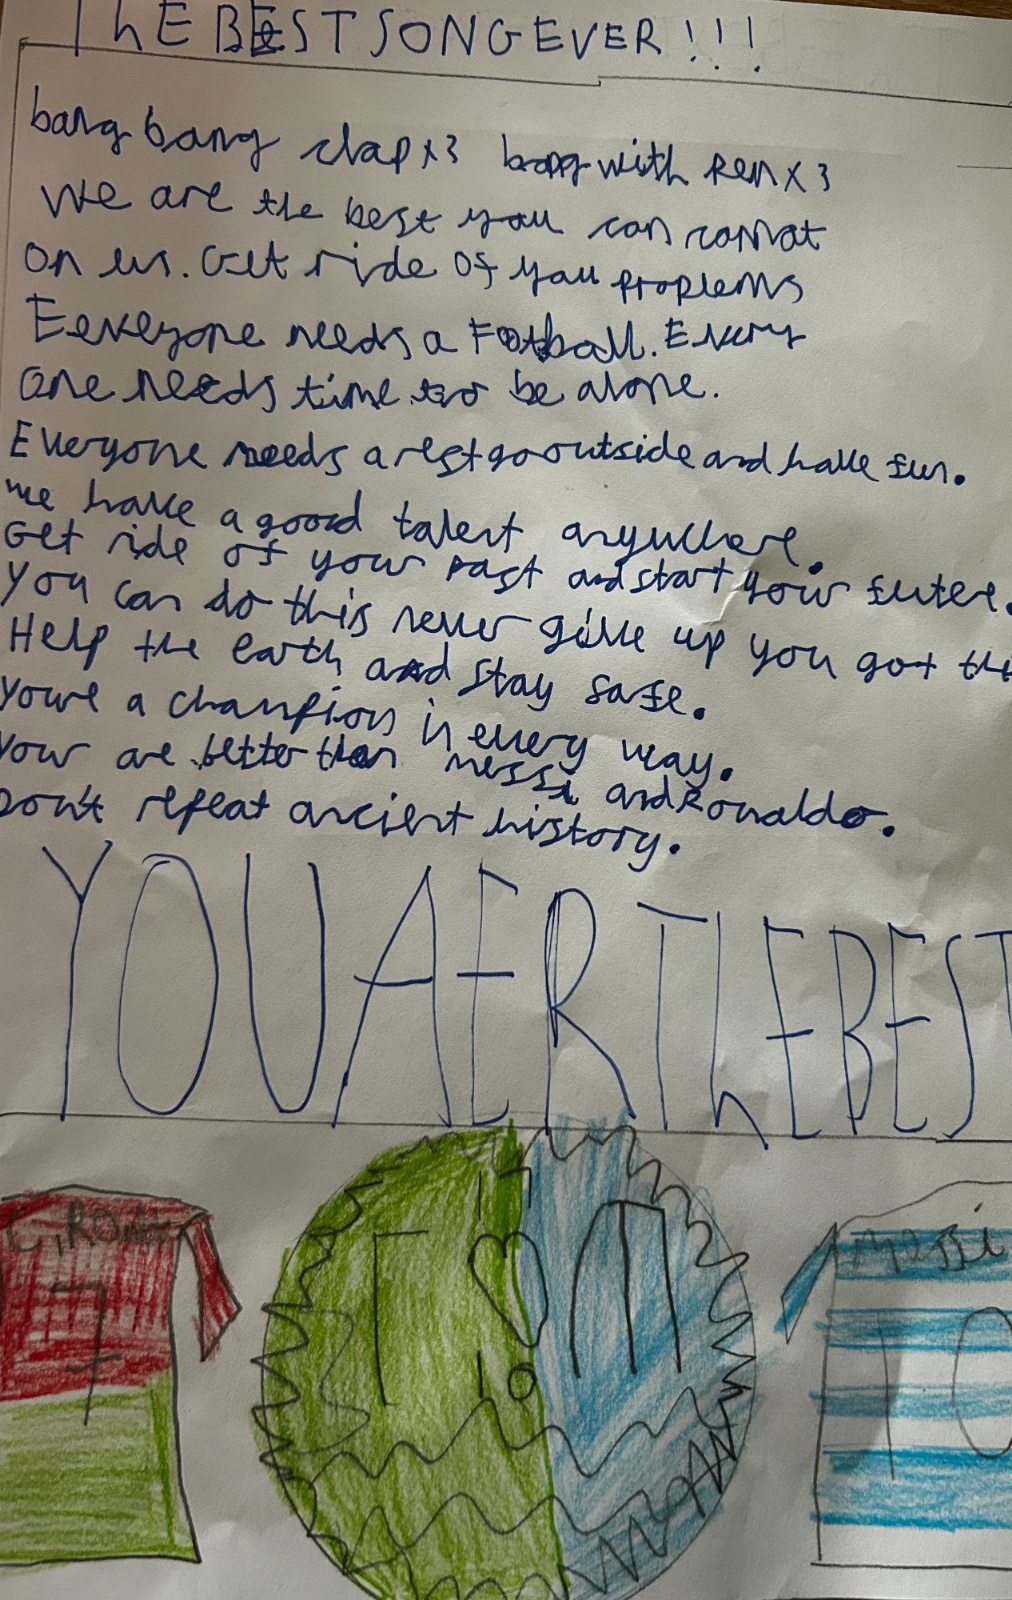 THE BEST SONG EVER!!!
bang bang clap x3 bang with Pen x3
We are the best you can connat
on us. Get ride of you proplems
Eeveyone needs a Football. Every
one needs time to be alone.
Everyone needs a rest go outside and have fun.
we have a good talent anywhere.
Get ride of your past and start your futere.
You can do this never give up you got thi
Help the earth and stay safe.
Your a champion in every way.
Your are better than messi and Ronaldo.
Don't repeat ancient history.
YOU AER THE BEST
C, Ronal
7
F
M
10
Messi
10